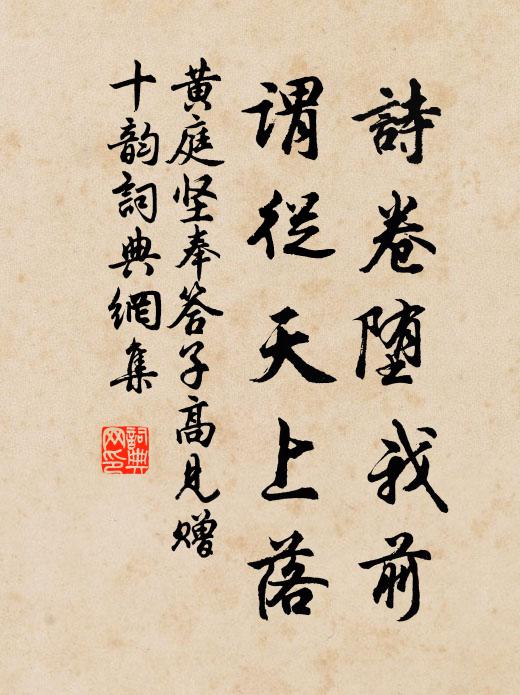 詩卷堕我前
謂從天上落
黃庭坚奉答子高見赠
十韵詞典網集
詞典
网印